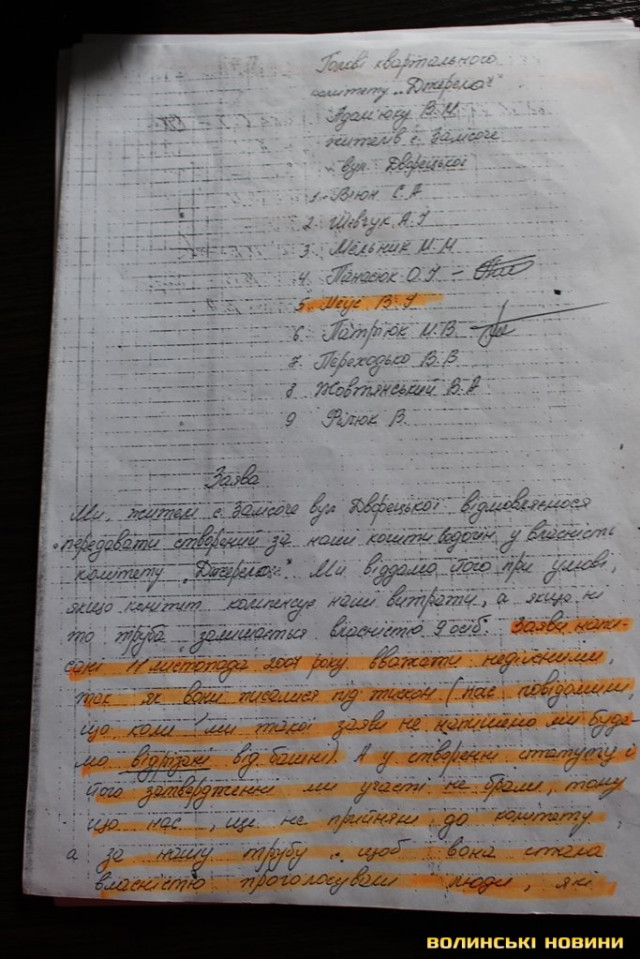 Голові квартального
комітету „Джерело"
Адам'юку В.М
жителів с. Замсоче
вул. Дворецької
1. В'юн С.А
2. Шевчук А.І
3. Мельник М.М
4. Панасюк О.І -
5. В.І
6. Патріюк М.В.
7. Переходько В.В
8. Жовтянський В.А
9 Рілюк В.
Заява
Ми, жителі с. Замсоче вул Дворецької відмовляємося
передавати створений за наши кошти водогін у власність
комітету „Джерело". Ми віддамо його при умові,
якщо комітет компенсує наші витрати, а якщо ні
то труба залишається власністю 9 осіб. Заяви напи-
сані 11 листопада 2007 року вважати недійсними,
так як вони писалися під тиском (нас повідомили
що коли ми такої заяви не напишемо ми буде
мо відрізані від башні). А у створенні статуту і
його затвердженні ми участі не брали, тому
що нас, ще не прийняли до комітету,
а за нашу трубу, щоб вона стала
власністю проголосували люди, які
ВОЛИНСЬКІ НОВИНИ